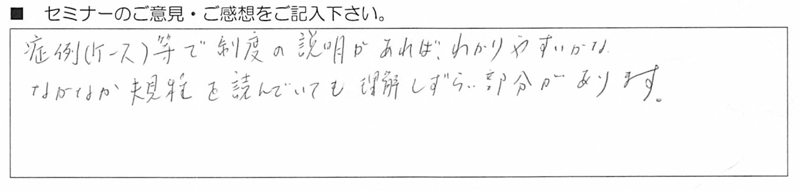 ■ セミナーのご意見・ご感想をご記入下さい。
症例(ケース)等で制度の説明があれば、わかりやすいかな
なかなか規程を読んでいても理解しずらい部分があります。